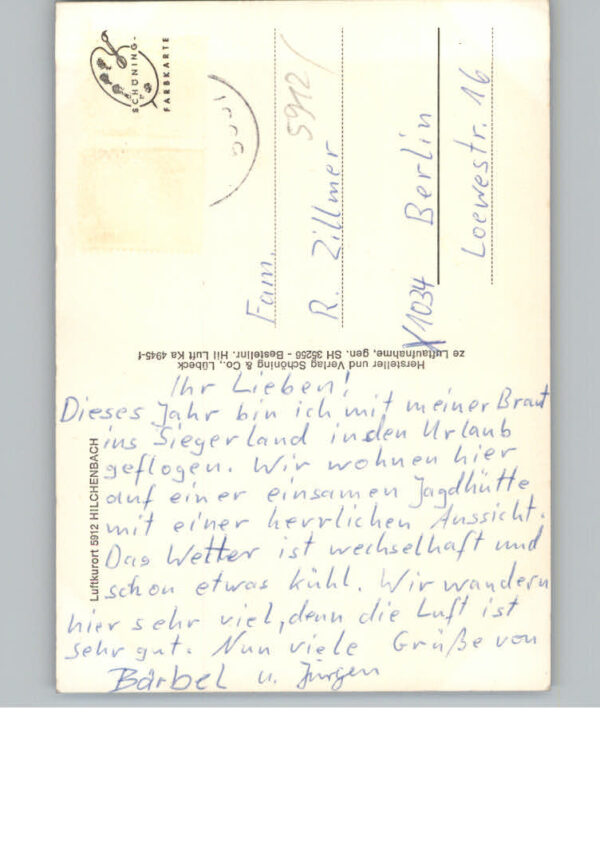 SCHÖNING-
FARBKARTE
5912
Fam.
R. Zillmer
X1034 Berlin
Loewestr. 16
Hersteller und Verlag Schöning & Co., Lübeck
ze Luftaufnahme, gen. SH 35256 - Bestellnr. Hil Luft Ka 4945-f
Luftkurort 5912 HILCHENBACH
Ihr Lieben!
Dieses Jahr bin ich mit meiner Braut
ins Siegerland in den Urlaub
geflogen. Wir wohnen hier
auf einer einsamen Jagdhütte
mit einer herrlichen Aussicht.
Das Wetter ist wechselhaft und
schon etwas kühl. Wir wandern
hier sehr viel, denn die Luft ist
sehr gut. Nun viele Grüße von
Bärbel u. Jürgen